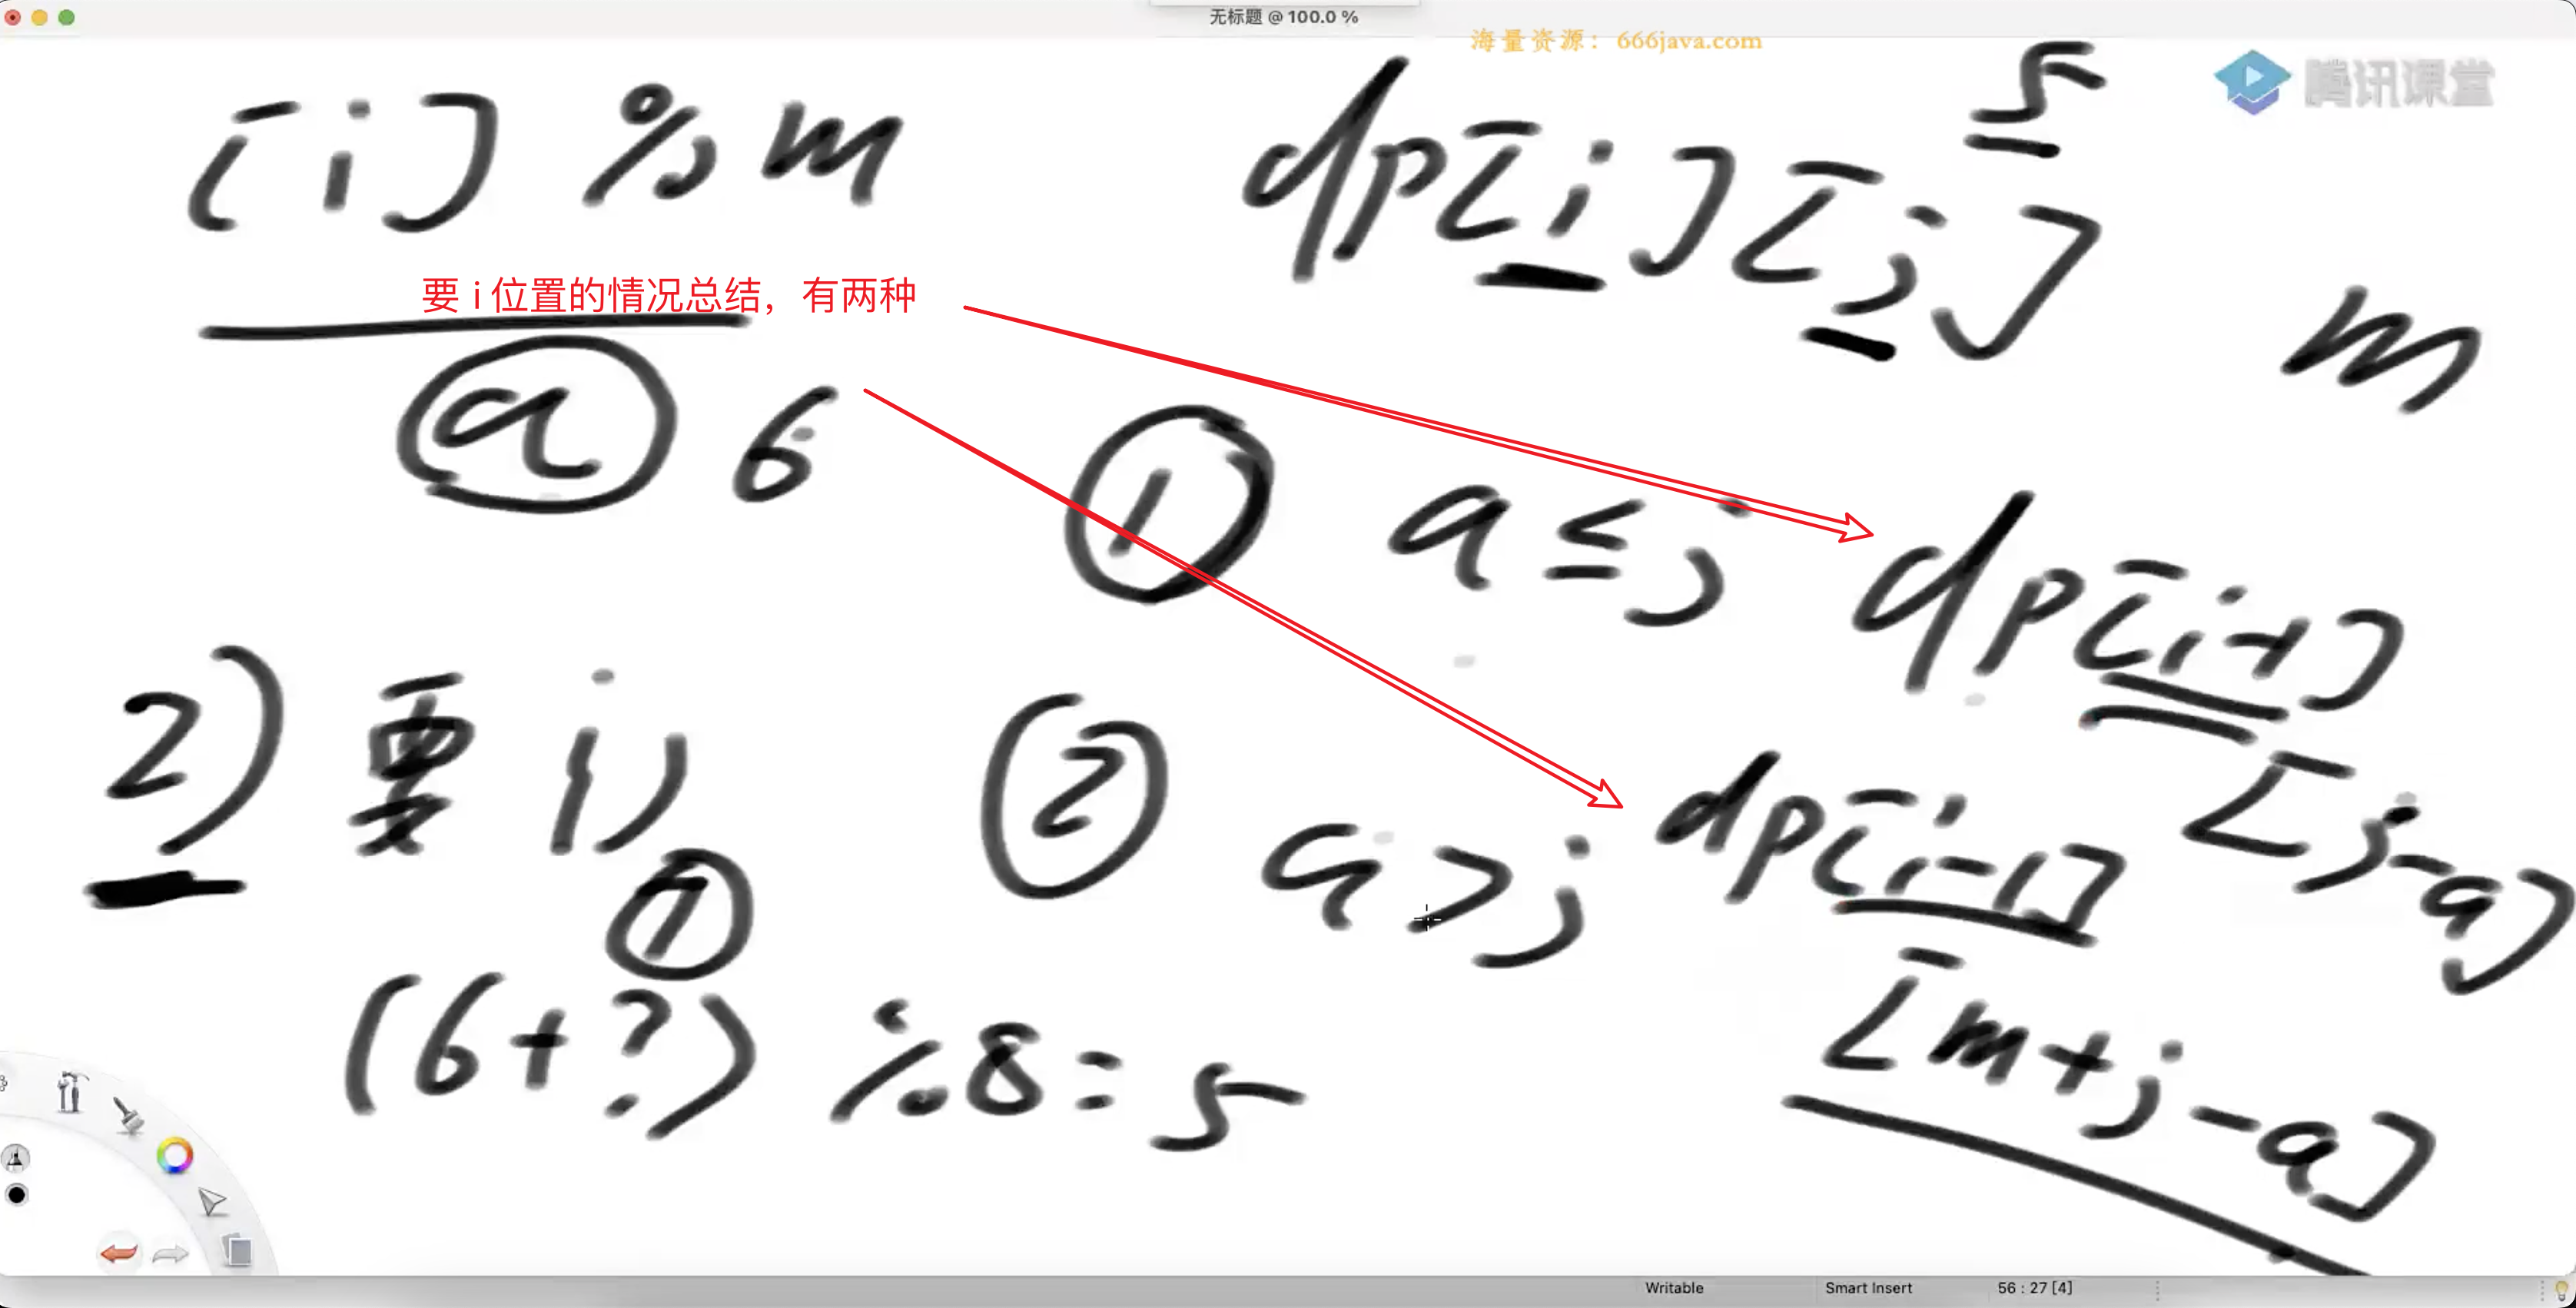 无标题 @ 100.0 %
海量资源：666java.com
腾讯课堂
[i] % m
dp[i][j]
5
m
要 i 位置的情况总结，有两种
a 6
① a ≤ j dp[i-1]
[j-a]
2) 要 i)
② a > j dp[i-1]
[m+j-a]
7
(6+?) % 8 = 5
Writable
Smart Insert
56 : 27 [4]